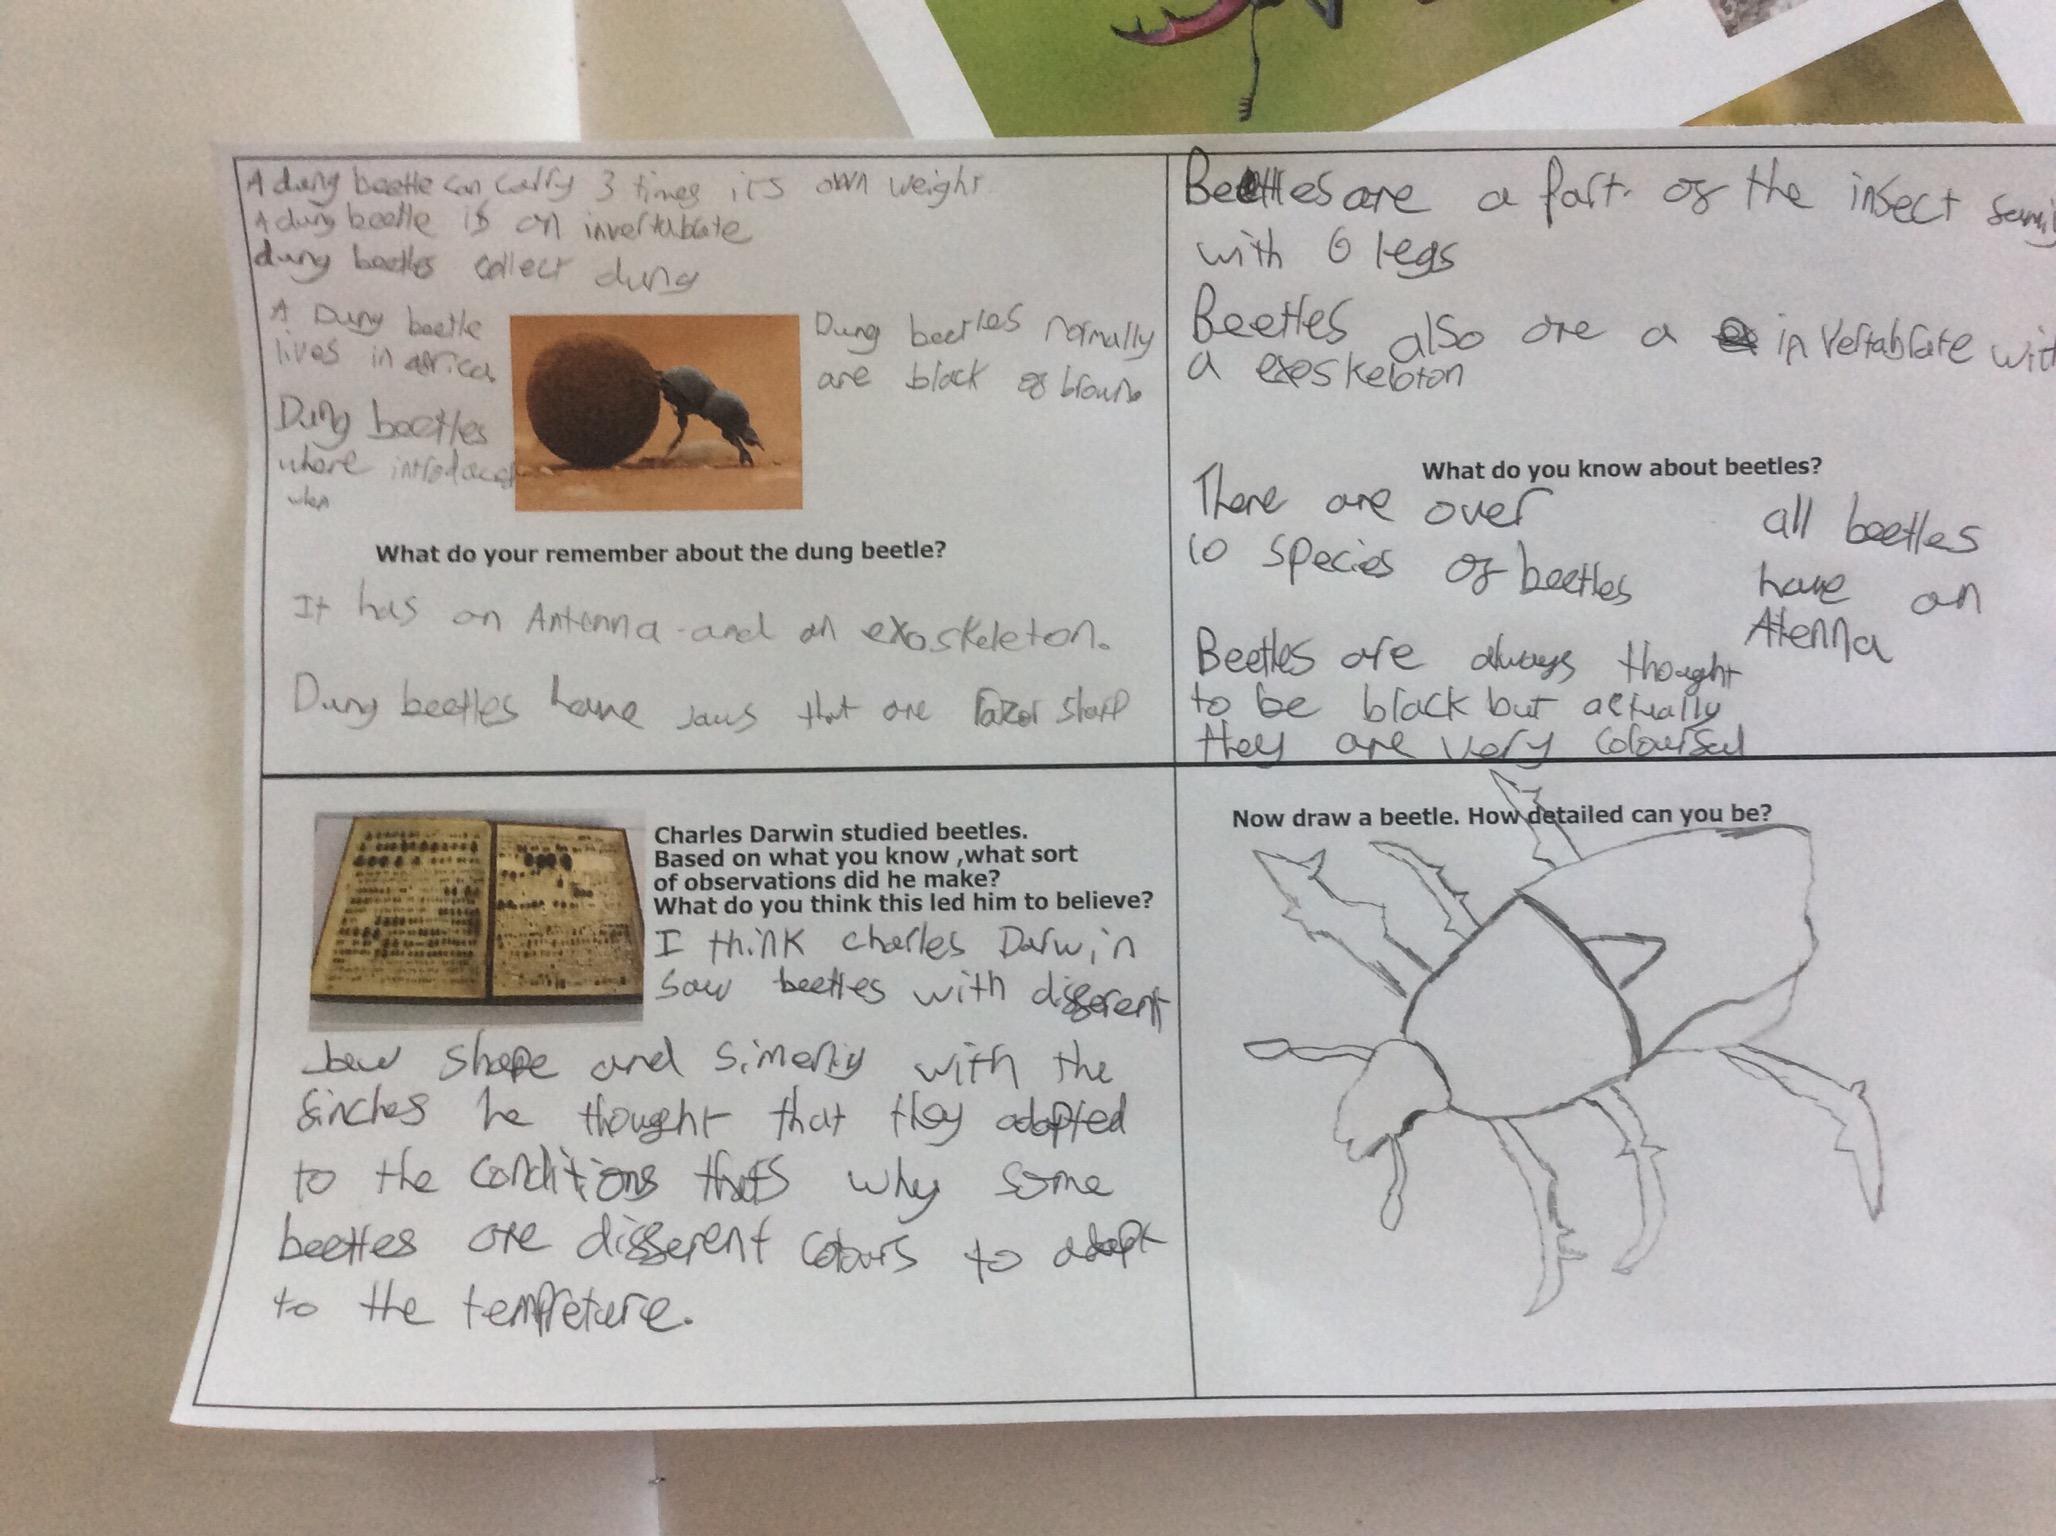 A dung beetle can carry 3 times its own weight
A dung beetle is an invertabrate
dung beetles collect dung
A Dung beetle
lives in africa
Dung beetles
where introduced
when
Dung beetles normally
are black or brown
What do your remember about the dung beetle?
It has an Antenna and an exoskeleton.
Dung beetles have Jaws that are razor sharp
Beetles are a part of the insect
with 6 legs
Beetles also are a invertabrate with
a exeskeloton
What do you know about beetles?
There are over
10 species of beetles
all beetles
have an
Atenna
Beetles are always thought
to be black but actually
they are very colourful
Charles Darwin studied beetles.
Based on what you know ,what sort
of observations did he make?
What do you think this led him to believe?
I think charles Darwin
saw beetles with different
Jaw shape and simerliy with the
finches he thought that they adapted
to the conditions thats why some
beetles are different colours to adapt
to the tempreture.
Now draw a beetle. How detailed can you be?